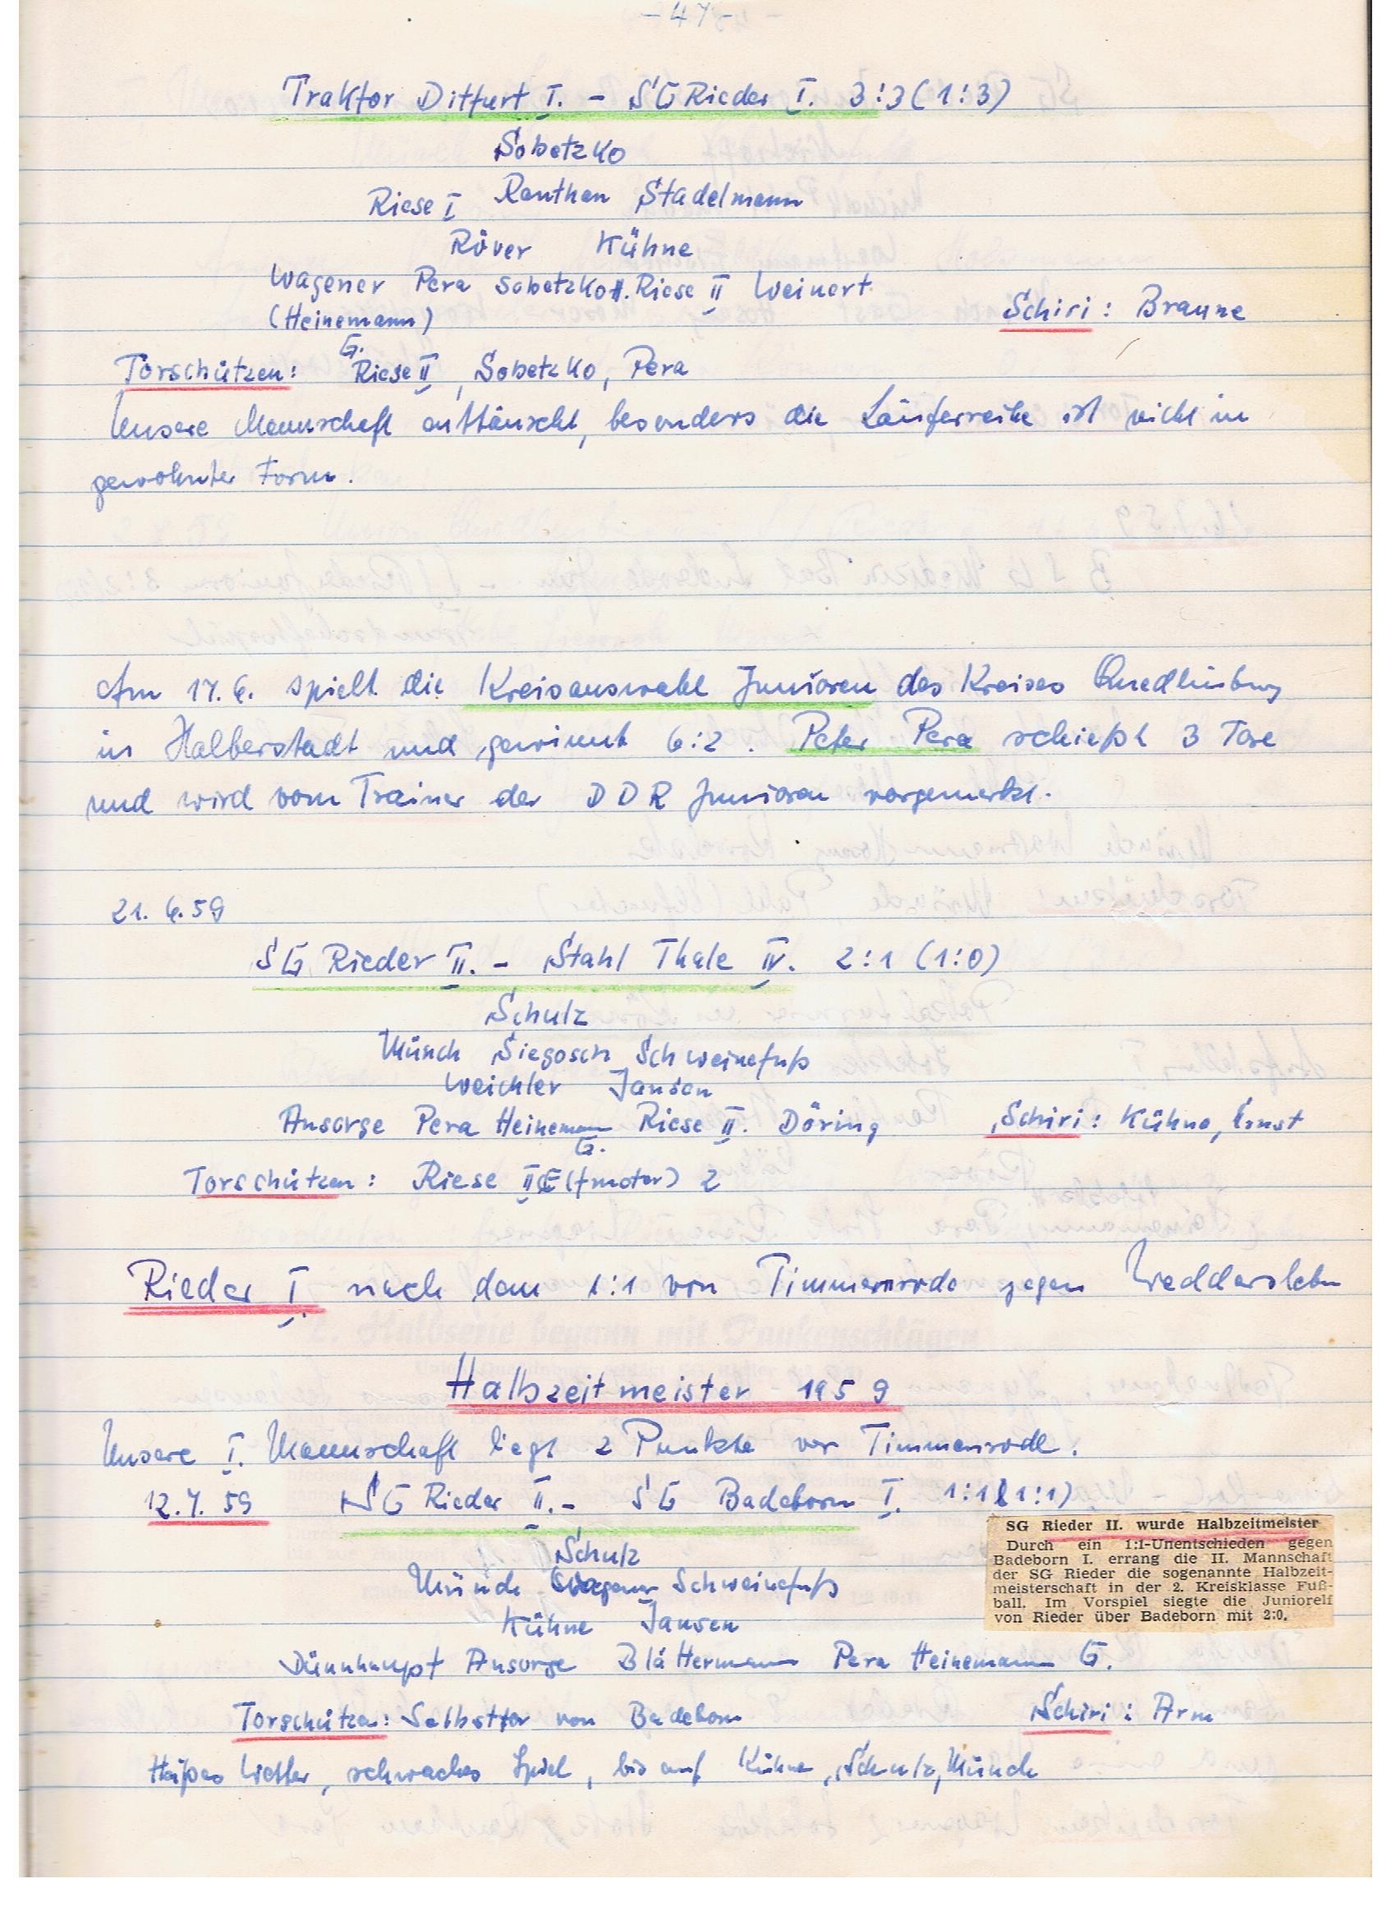 - 47 -
Traktor Ditfurt I. - SG Rieder I. 3:3 (1:3)
Sobetzko
Riese I Ranthen Stadelmann
Röver Kühne
Wagener Pera Sobetzko II. Riese II Weinert
(Heinemann)
G.
Schiri: Braune
Torschützen: Riese II, Sobetzko, Pera
Unsere Mannschaft enttäuscht, besonders die Läuferreihe ist nicht in
gewohnter Form.
Am 17.6. spielt die Kreisauswahl Junioren des Kreises Quedlinburg
in Halberstadt und gewinnt 6:2. Peter Pera schießt 3 Tore
und wird vom Trainer der DDR Junioren vorgemerkt.
21.6.59
SG Rieder II. - Stahl Thale IV. 2:1 (1:0)
Schulz
Münch Siegosch Schweinefuß
Weichler Jansen
Ansorge Pera Heinemann Riese II. Döring
G.
Schiri: Kühne, Ernst
Torschützen: Riese II 2
Rieder I. nach dem 1:1 von Timmenrode gegen Weddersleben
Halbzeitmeister 1959
Unsere I. Mannschaft liegt 2 Punkte vor Timmenrode.
12.7.59 SG Rieder II. - SG Badeborn I. 1:1 (1:1)
SG Rieder II. wurde Halbzeitmeister
Durch ein 1:1-Unentschieden gegen
Badeborn I. errang die II. Mannschaft
der SG Rieder die sogenannte Halbzeit-
meisterschaft in der 2. Kreisklasse Fuß-
ball. Im Vorspiel siegte die Juniorelf
von Rieder über Badeborn mit 2:0.
Schulz
Münch Wagener Schweinefuß
Kühne Jansen
Dünnhaupt Ansorge Blättermann Pera Heinemann G.
Torschützen: Selbsttor von Badeborn
Schiri: Arm
Heißes Wetter, schwaches Spiel, bis auf Kühne, Schulz, Münch